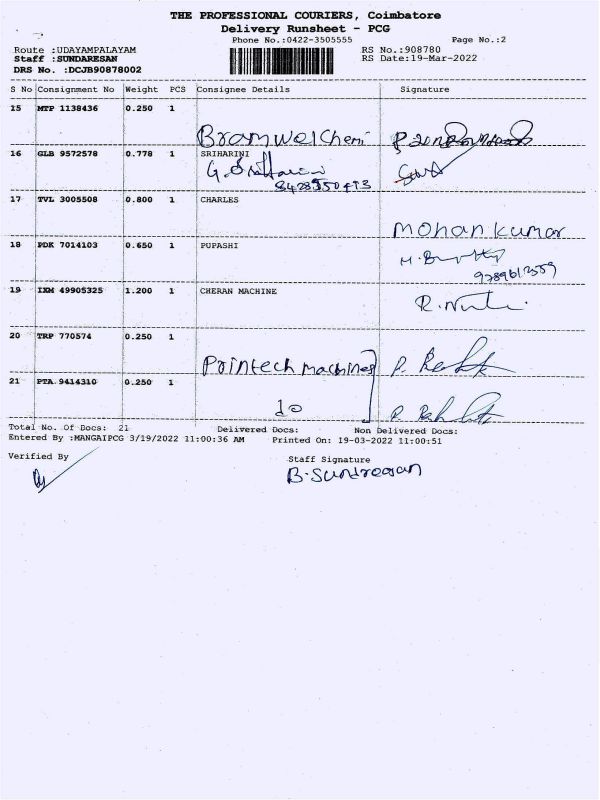 THE PROFESSIONAL COURIERS, Coimbatore
Delivery Runsheet - PCG
Phone No.:0422-3505555 Page No.:2
Route :UDAYAMPALAYAM RS No.:908780
Staff :SUNDARESAN RS Date:19-Mar-2022
DRS No. :DCJB90878002
S No Consignment No Weight PCS Consignee Details Signature
15 MTP 1138436 0.250 1
Bramwelchem
16 GLB 9572578 0.778 1 SRIHARINI
17 TVL 3005508 0.800 1 CHARLES
Mohan kumar
18 PDK 7014103 0.650 1 PUPASHI
19 IXM 49905325 1.200 1 CHERAN MACHINE
20 TRP 770574 0.250 1
Printech machines
21 PTA 9414310 0.250 1
do
Total No. Of Docs: 21 Delivered Docs: Non Delivered Docs:
Entered By :MANGAIPCG 3/19/2022 11:00:36 AM Printed On: 19-03-2022 11:00:51
Verified By Staff Signature
B. Sundresan